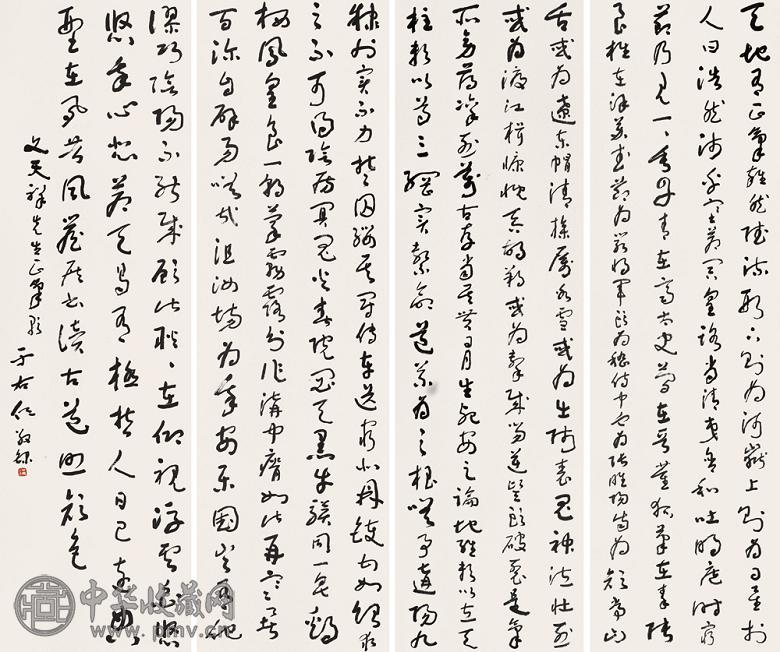 天地有正氣雜然賦流形下則為河嶽上則為日星於
人曰浩然沛乎塞蒼冥皇路當清夷含和吐明庭時窮
節乃見一一垂丹青在齊太史簡在晉董狐筆在秦張
良椎在漢蘇武節為嚴將軍頭為嵇侍中血為張睢陽齒為顏常山
舌或為遼東帽清操厲冰雪或為出師表鬼神泣壯烈
或為渡江楫慷慨吞胡羯或為擊賊笏逆豎頭破裂是氣
所旁薄凜烈萬古存當其貫日月生死安足論地維賴以立天
柱賴以尊三綱實繫命道義為之根嗟予遘陽九
隸也實不力楚囚纓其冠傳車送窮北鼎鑊甘如飴求
之不可得陰房闃鬼火春院閟天黑牛驥同一皂雞
棲鳳凰食一朝蒙霧露分作溝中瘠如此再寒暑
百沴自辟易嗟哉沮洳場為我安樂國豈有他
繆巧陰陽不能賊顧此耿耿在仰視浮雲白悠
悠我心悲蒼天曷有極哲人日已遠典
型在夙昔風簷展書讀古道照顏色
文天祥先生正氣歌 于右任敬錄
中华收藏网
www.pmv.cn